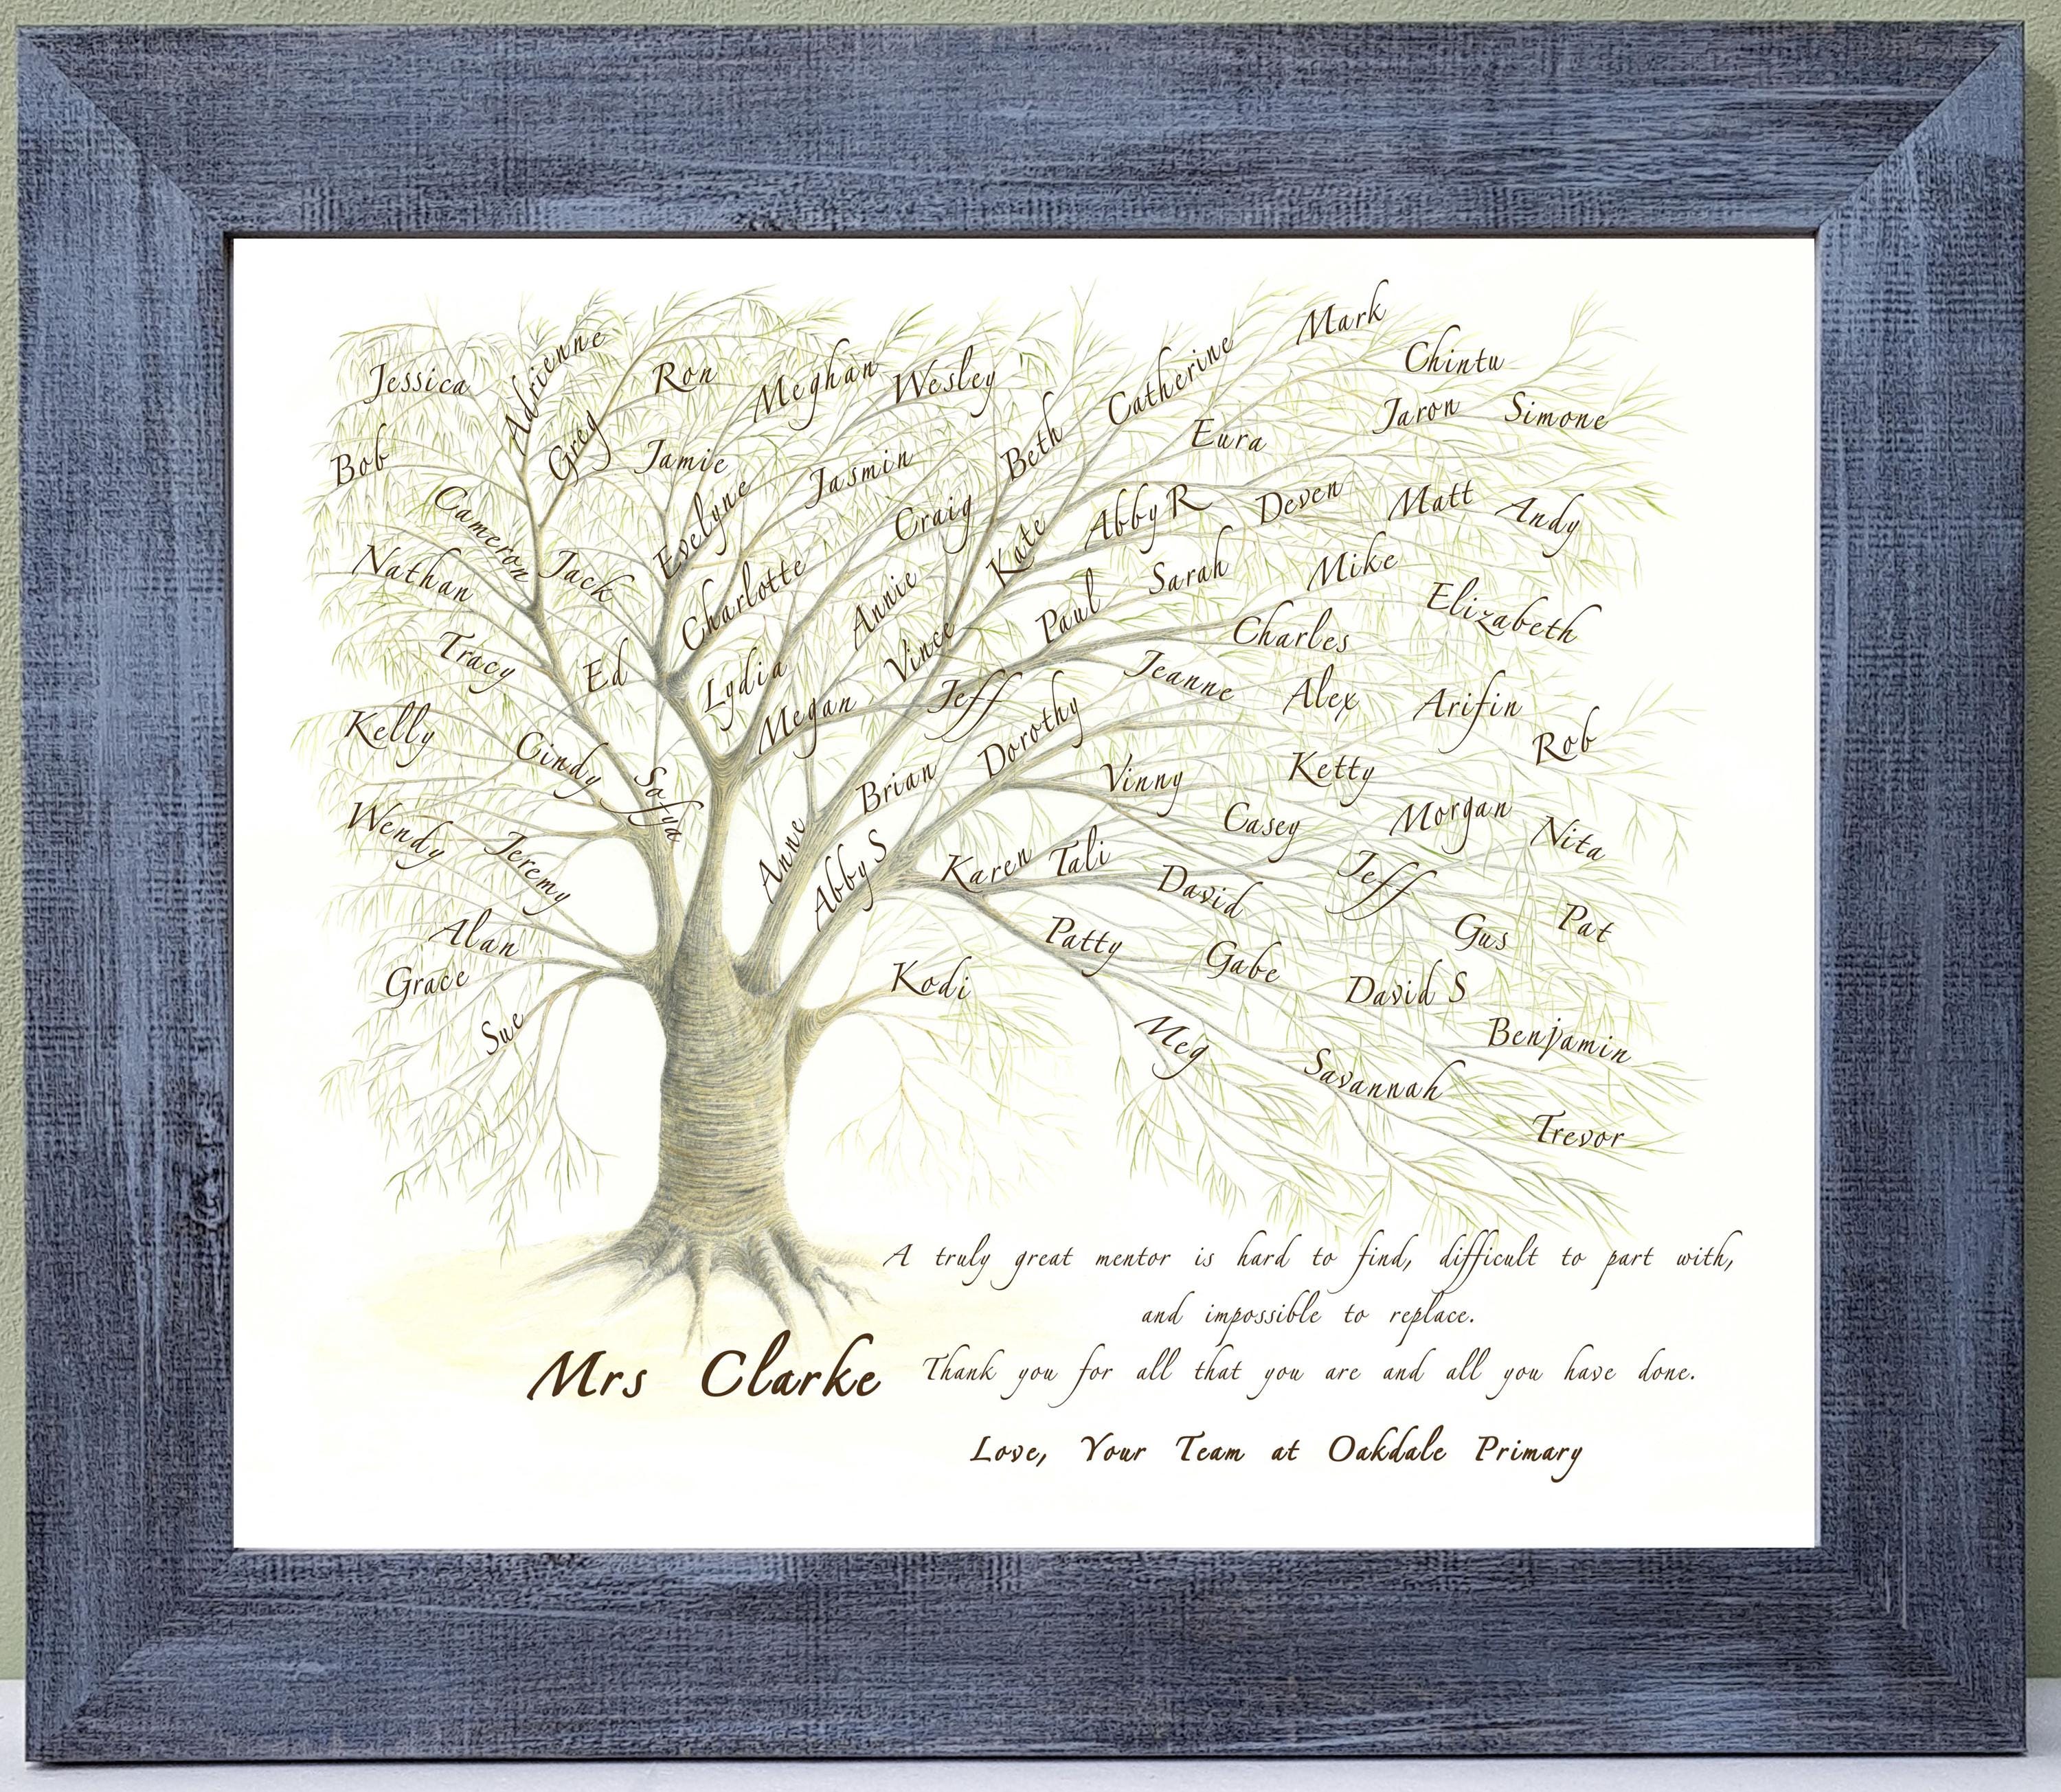 Mark
Adrienne
Chintu
Jessica
Ron
Meghan
Wesley
Catherine
Jaron
Simone
Greg
Bob
Jamie
Jasmin
Beth
Eura
Cameron
Evelyne
Craig
Abby R
Deven
Matt
Andy
Nathan
Jack
Kate
Sarah
Mike
Charlotte
Annie
Paul
Elizabeth
Tracy
Ed
Lydia
Vince
Charles
Megan
Jeff
Jeanne
Alex
Arifin
Kelly
Cindy
Sofya
Dorothy
Rob
Brian
Vinny
Ketty
Wendy
Casey
Morgan
Nita
Jeremy
Anne
Abby S
Karen
Tali
David
Jeff
Alan
Patty
Gus
Pat
Grace
Kodi
Gabe
David S
Sue
Meg
Benjamin
Savannah
Trevor
A truly great mentor is hard to find, difficult to part with,
and impossible to replace.
Mrs Clarke
Thank you for all that you are and all you have done.
Love, Your Team at Oakdale Primary